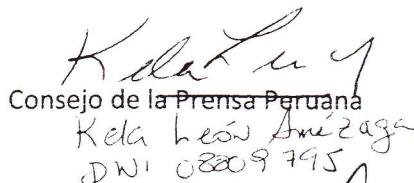 Consejo de la Prensa Peruana
Kela León Amézaga
DNI 08209795